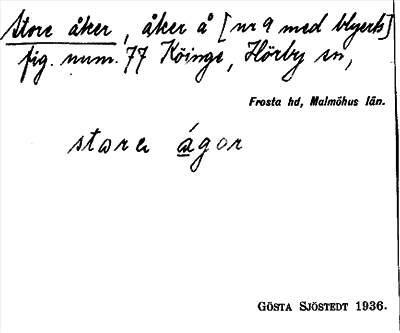 Store åker, åker å [nr 9 med blyerts]
fig. num. 77 Köinge, Hörby sn,
Frosta hd, Malmöhus län.
stora ágor
GÖSTA SJÖSTEDT 1936.